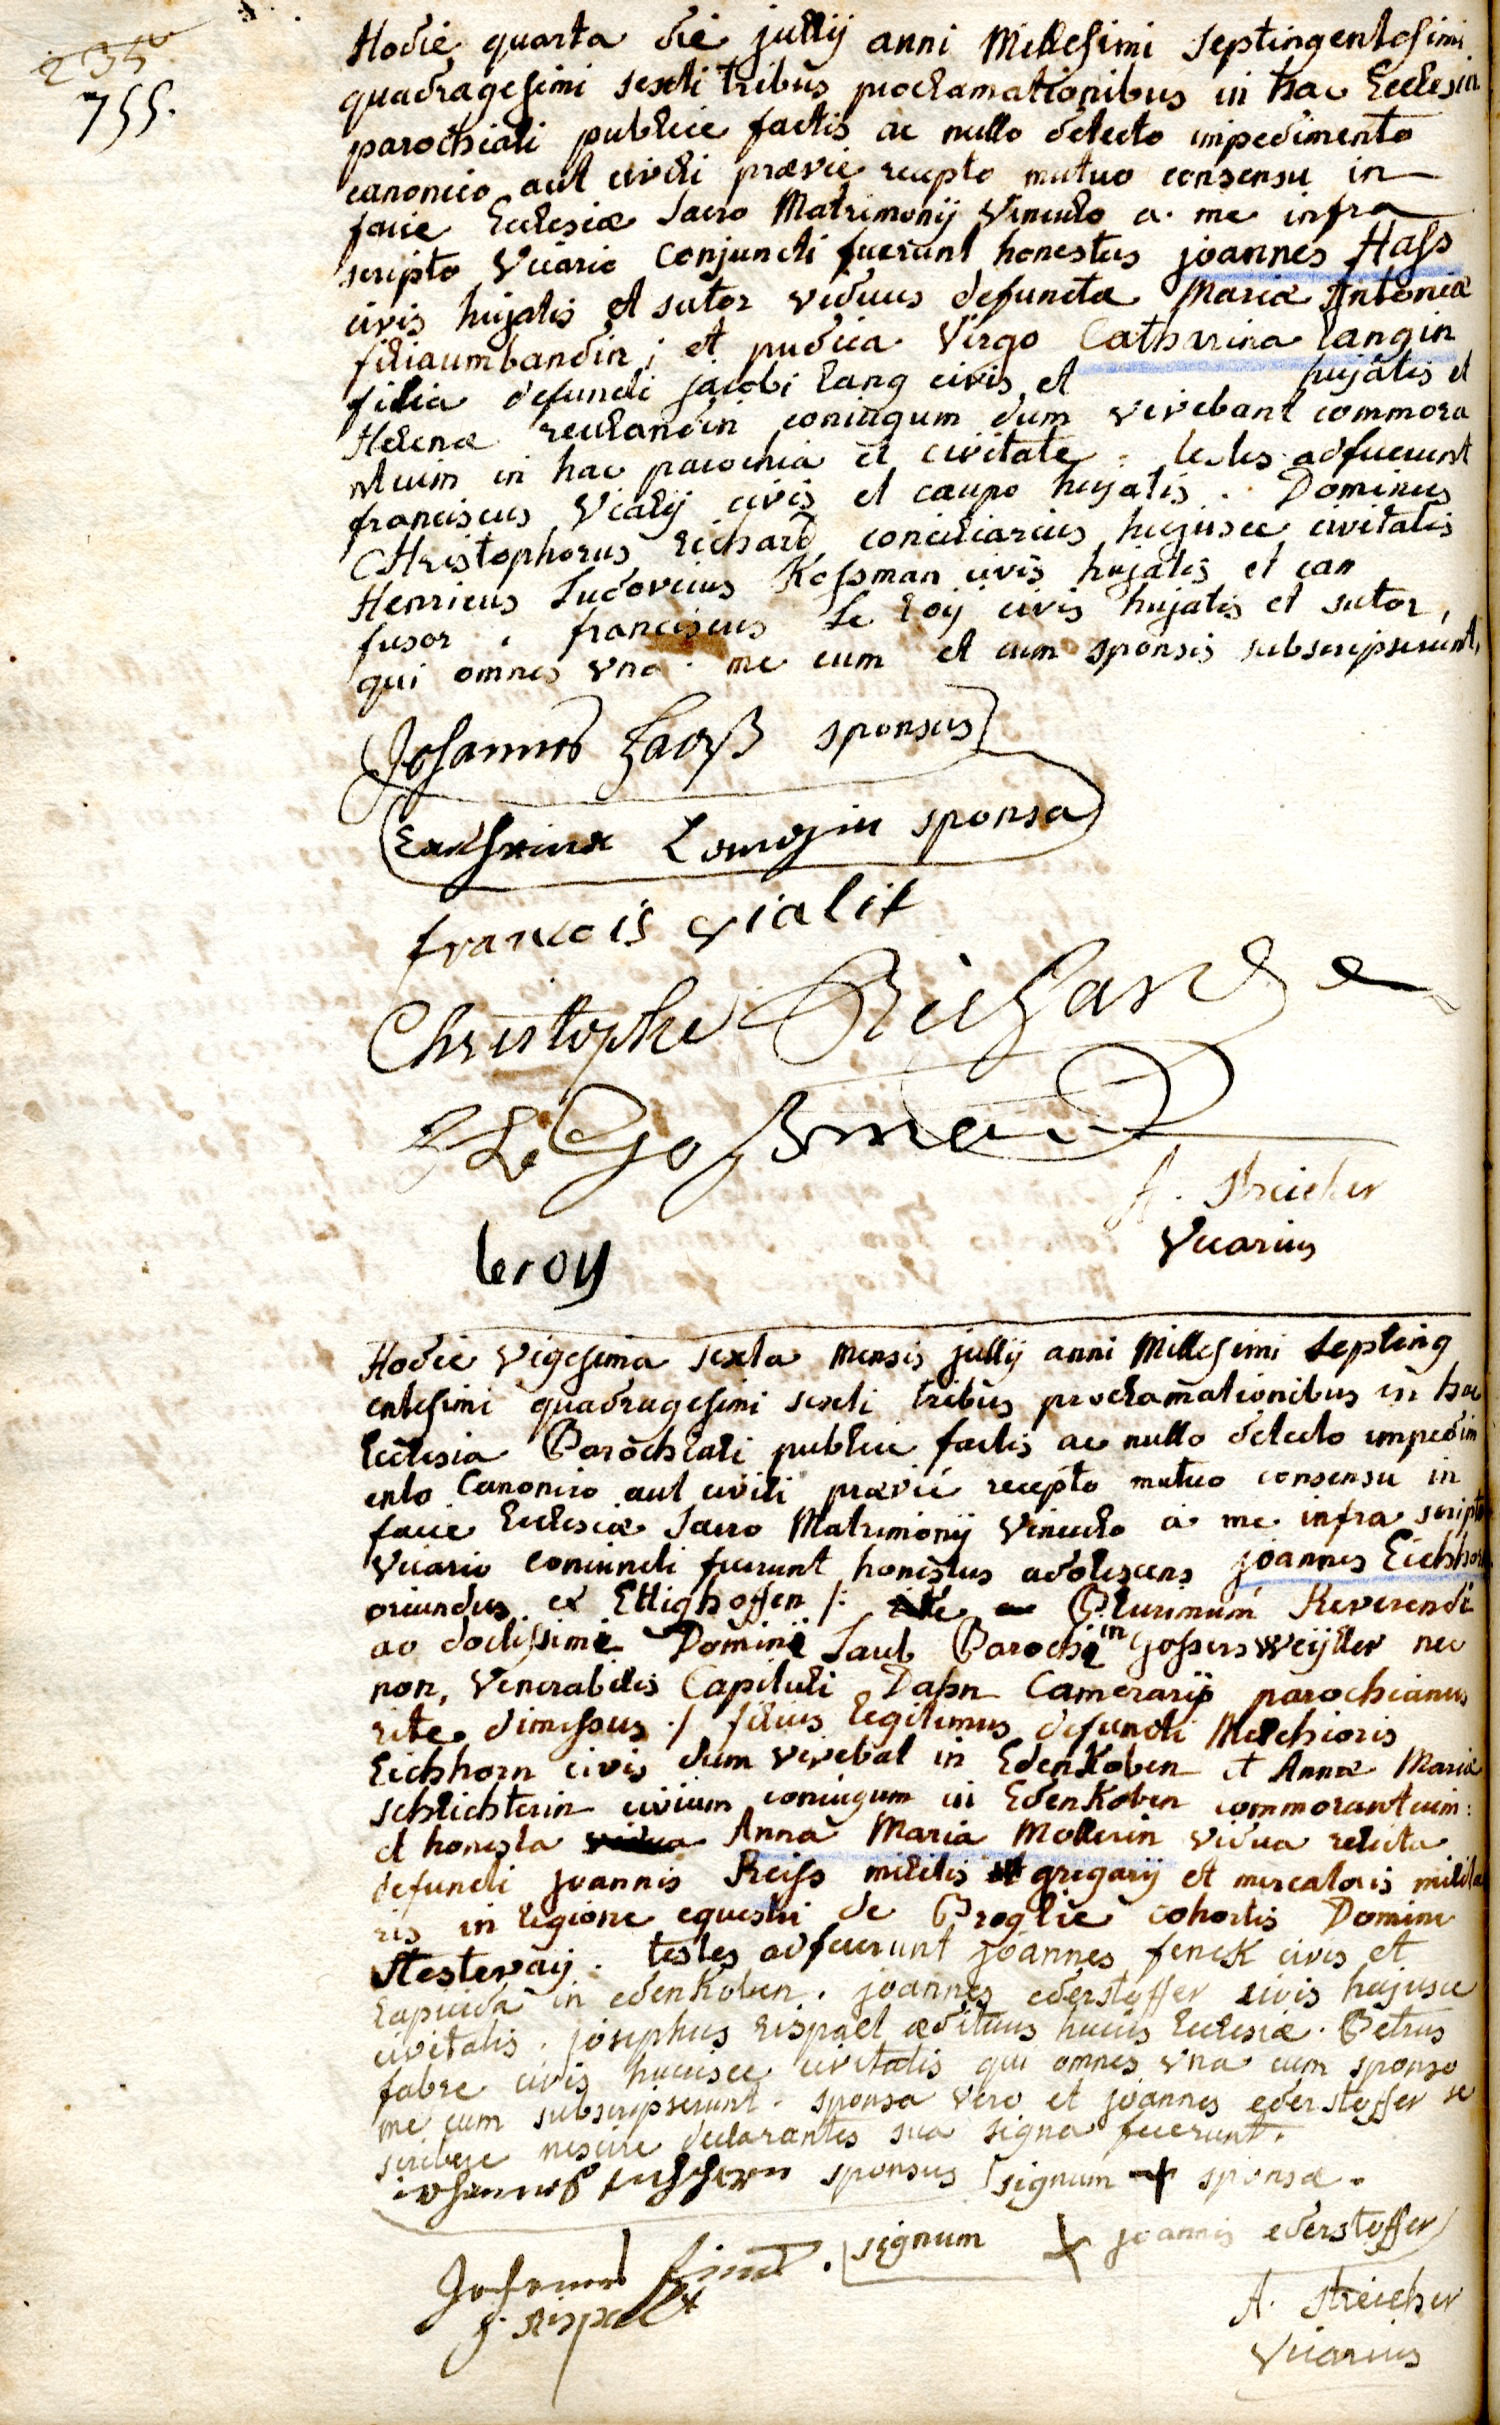 235
755.
Hodie quarta die jullij anni Millesimi septingentesimi
quadragesimi sexti tribus proclamationibus in hac Ecclesia
parochiali publice factis ac nullo detecto impedimento
canonico aut civili prævie recepto mutuo consensu in
facie Ecclesiæ sacro Matrimonij Vinculo a me infra
scripto Vicario conjuncti fuerunt honestus joannes Hass
civis hujatis et sutor viduus defunctæ Mariæ Antoniæ
filiaumbandin; et pudica Virgo Catharina langin
filia defuncti jacobi lang civis et hujatis et
Helenæ coniugum dum vivebant commora
ntium in hac parochia et civitate. testes adfuerunt
franciscus Vialij civis et caupo hujatis. Dominus
CHristophorus richard conciliarius hujusce civitatis
Henricus Ludovicus Kossman civis hujatis et can
fusor. franciscus Le roij civis hujatis et sutor,
qui omnes vna me cum et cum sponsis subscripserunt,
Johannes Haaß sponsus
Catharina Langin sponsa
francois vialit
Christophe Richard
HL Goßman
A. Streicher
Vicarius
leroy
Hodie Vigesima sexta mensis jullij anni Millesimi septing
entesimi quadragesimi sexti tribus proclamationibus in hac
Ecclesia Parochiali publice factis ac nullo detecto impedim
ento Canonico aut civili prævié recepto mutuo consensu in
facie Ecclesiæ sacro Matrimonij Vinculo á me infra scripto
Vicario coniuncti fuerunt honestus adolescens joannes Eichhorn
oriundus ex Ettighoffen /: Plurimum Reverendi
ac doctissimi Domini Saul Parochi in Gossersweijller nec
non, Venerabilis Capituli Dahn Camerarij parochianus
rite dimissus ./ filius legitimus defuncti Melchioris
Eichhorn civis dum vivebat in EdenKoben et Annæ Mariæ
schlichterin civium coniugum in EdenKoben commorantium:
et honesta vidua Anna Maria Mollerin vidua relicta
defuncti joannis Reiss militis gregarij et mercatoris milita
ris in legione equestri de Broglie cohortis Domini
Stesteraij. testes adfuerunt joannes fenck civis et
lapicida in edenkoben. joannes ederstoffer civis hujusce
civitatis. josephus rispalt ædituus huius Ecclesiæ. Petrus
fabre civis huiusce civitatis qui omnes vna cum sponso
me cum subscripserunt. sponsa vero et joannes ederstoffer se
scribere nescire declarantes sua signa fecerunt.
iohannes eichhorn sponsus signum + sponsæ.
signum + joannis ederstoffer
Johannes
j. rispalt
A. Streicher
Vicarius